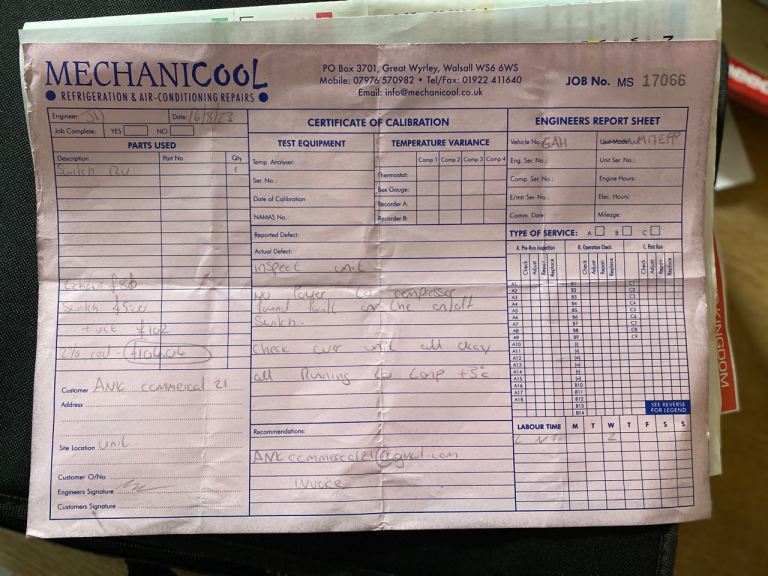 MECHANICOOL
REFRIGERATION & AIR-CONDITIONING REPAIRS
PO Box 3701, Great Wyrley, Walsall WS6 6WS
Mobile: 07976 570982 • Tel/Fax: 01922 411640
Email: info@mechanicool.co.uk
JOB No. MS 17066
Engineer:
Date: /6/8/23
Job Complete: YES NO
PARTS USED
Description Part No. Qty
Switch 12V 1
Labour £80
Switch £5.00
+ vat £102
Customer ANK commercal 21
Address
Site Location unit
Customer O/No.
Engineers Signature
Customers Signature
CERTIFICATE OF CALIBRATION
TEST EQUIPMENT
Temp. Analyser:
Ser. No.:
Date of Calibration
NAMAS No.:
TEMPERATURE VARIANCE
Comp 1 Comp 2 Comp 3 Comp 4
Thermostat:
Box Gauge:
Recorder A:
Recorder B:
Reported Defect:
Actual Defect:
inspect unit
no Power to compressor
found fault on the on/off
Switch.
Check over unit all okay
all Running to temp +5°c
Recommendations:
ANKcommercal21@gmail.com
invoice
ENGINEERS REPORT SHEET
Vehicle No. GAH Unit Model WM17EPP
Eng. Ser. No.: Unit Ser. No.:
Comp. Ser. No.: Engine Hours:
E/mtr Ser. No.: Elec. Hours:
Comm. Date: Mileage:
TYPE OF SERVICE: A B C
A. Pre-Run Inspection B. Operation Check C. Post Run
Check Adjust Repair Replace Check Adjust Repair Replace Check Adjust Repair Replace
SEE REVERSE
FOR LEGEND
LABOUR TIME M T W T F S S
2
KINGDOM